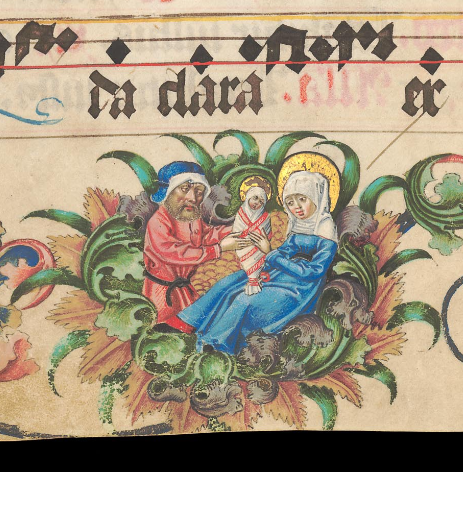 da clara. et